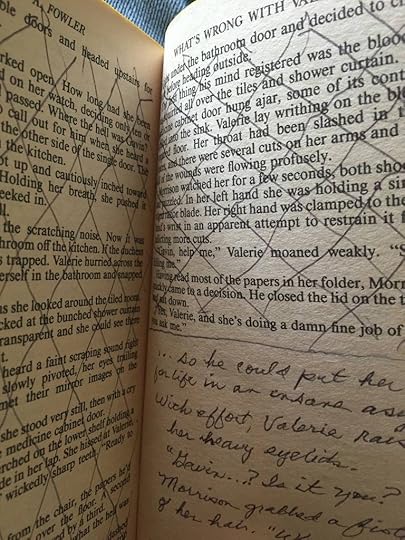 A. FOWLER
doors and headed upstairs for
worked open. How long had she been
on her watch, deciding only ten or
passed. Where the hell was Gavin?
to call out for him when she heard a
the other side of the single door. The
in the kitchen.
got up and cautiously inched toward
Holding her breath, she pushed it
peeked in.
the scratching noise. Now it was
bathroom off the kitchen. If the
was trapped. Valerie hurried across the
herself in the bathroom and snapped
as she looked around the tiled room.
looked at the bunched shower curtain.
transparent and she could see there
heard a faint scraping sound right
slowly pivoted, her eyes trailing
met their mirror images on the
she stood very still, then with a cry
the medicine cabinet door.
perched on the lower shelf holding a
blade in her lap. She hissed at Valerie,
wickedly sharp teeth. "Ready to
from the chair, the papers he'd
over the floor. A second
by a third.
that the hell was
WHAT'S WRONG WITH VAL
under the bathroom door and decided to
before heading outside.
thing his mind registered was the blood
all over the tiles and shower curtain.
cabinet door hung ajar, some of its cont
and the sink. Valerie lay writhing on the blo
floor. Her throat had been slashed in t
and there were several cuts on her arms and
of the wounds were flowing profusely.
Morrison watched her for a few seconds, both shoc
In her left hand she was holding a sin
blade. Her right hand was clamped to the
wrist in an apparent attempt to restrain it f
more cuts.
"Gavin, help me," Valerie moaned weakly. "S
me."
read most of the papers in her folder, Morr
came to a decision. He closed the lid on the t
sat down.
Valerie, and she's doing a damn fine job of
you ask me."
... so he could put her
for life in an insane asy
With effort, Valerie rais
her heavy eyelids.
"Gavin...? Is it you?
Morrison grabbed a fist
of her hair.